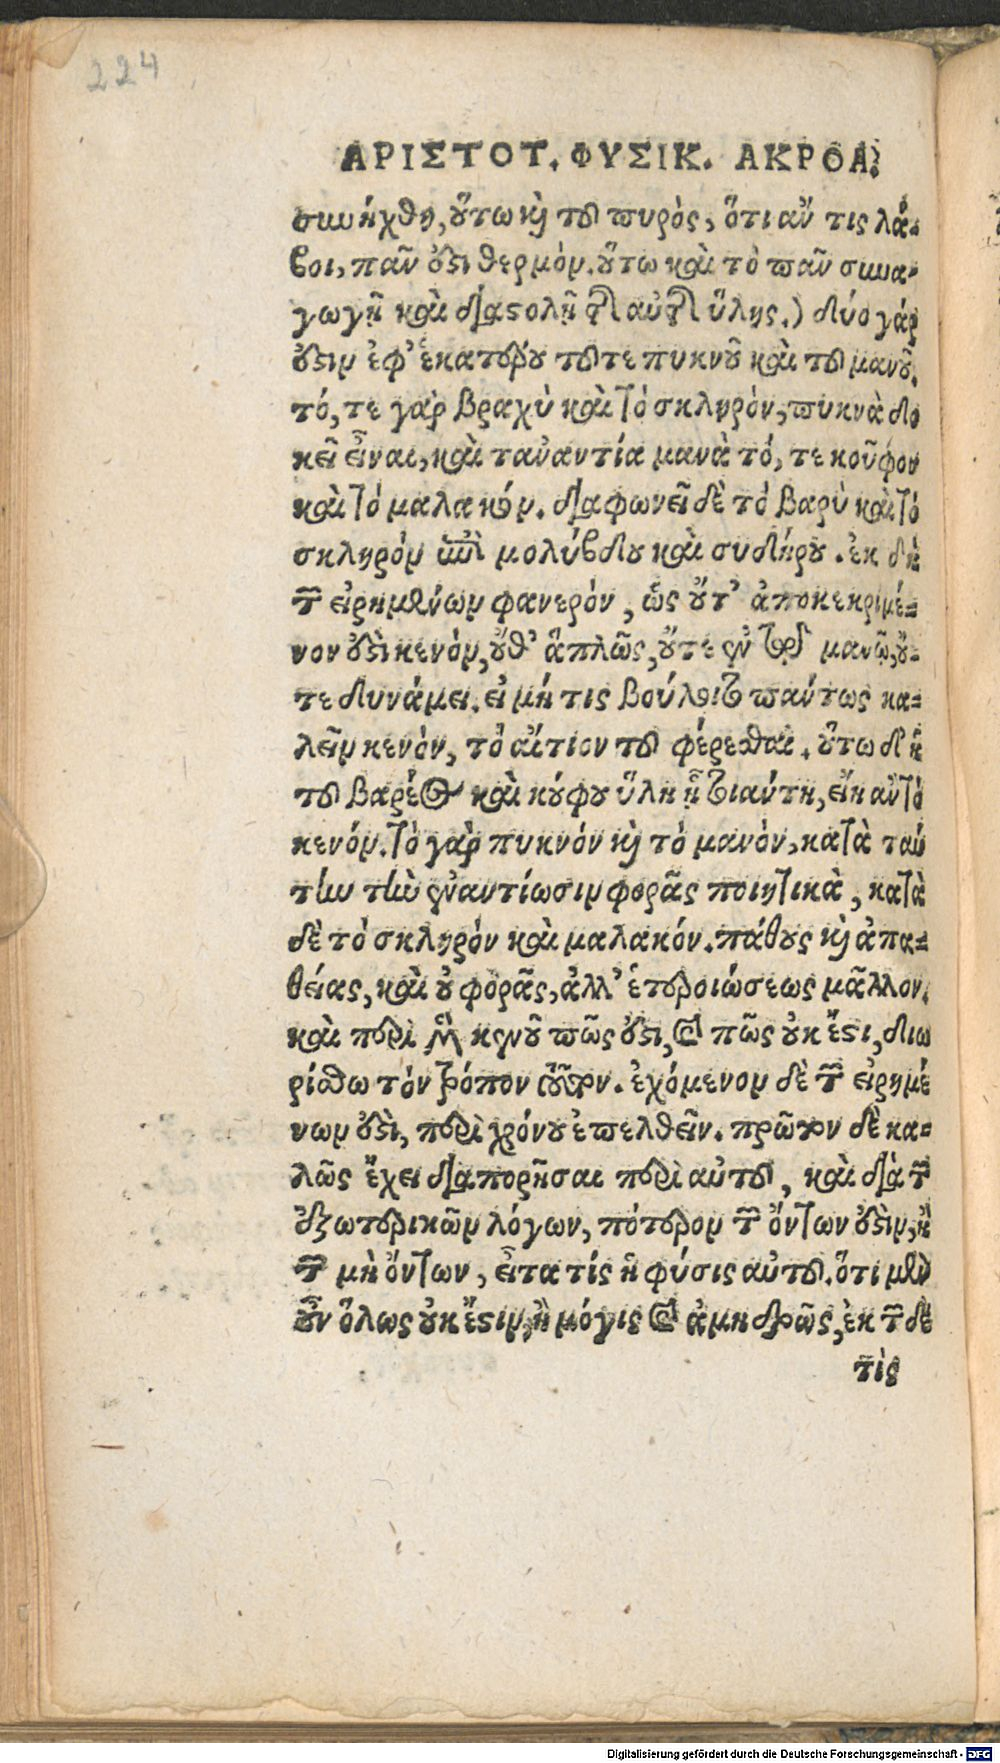 224
ΑΡΙΣΤΟΤ. ΦΥΣΙΚ. ΑΚΡΟΑ.
συνήχθη, οὕτω καὶ τοῦ πυρὸς, ὅτι ἄν τις λά-
βοι, πᾶν ἐστι θερμόν. οὕτω καὶ τὸ πᾶν συνα-
γωγῇ καὶ διαστολῇ τῆς αὐτῆς ὕλης.) δύο γάρ
ἐστιν ἐφ' ἑκατέρου τοῦ τε πυκνοῦ καὶ τοῦ μανοῦ.
τό, τε γὰρ βραχὺ καὶ τὸ σκληρὸν, πυκνὰ δο
κεῖ εἶναι, καὶ ταναντία μανὰ τό, τε κοῦφον
καὶ τὸ μαλακόν. διαφωνεῖ δὲ τὸ βαρὺ καὶ τὸ
σκληρόν ἐπὶ μολύβδου καὶ σιδήρου. ἐκ δὴ
τῶν εἰρημένων φανερὸν, ὡς οὔτ' ἀποκεκριμέ-
νον ἐστὶ κενόν, οὔθ' ἁπλῶς, οὔτε ἐν τῷ μανῷ, οὔ-
τε δυνάμει. εἰ μή τις βούλεται πάντως κα-
λεῖν κενὸν, τὸ αἴτιον τοῦ φέρεσθαι. οὕτω δ' ἡ
τοῦ βαρέος καὶ κούφου ὕλη ᾗ τοιαύτη, εἴη ἂν τὸ
κενόν. τὸ γὰρ πυκνόν καὶ τὸ μανὸν, κατὰ ταύ
την τὴν ἐναντίωσιν φορᾶς ποιητικὰ, κατὰ
δὲ τὸ σκληρὸν καὶ μαλακόν. πάθους καὶ ἀπα-
θείας, καὶ οὐ φορᾶς, ἀλλ' ἑτεροιώσεως μᾶλλον.
καὶ περὶ μὲν κενοῦ πῶς ἐστι, καὶ πῶς οὐκ ἔστι, διω
ρίσθω τὸν τρόπον τοῦτον. ἐχόμενον δὲ τῶν εἰρημέ
νων ἐστὶ, περὶ χρόνου ἐπελθεῖν. πρῶτον δὲ κα-
λῶς ἔχει διαπορῆσαι περὶ αὐτοῦ, καὶ διὰ τῶν
ἐξωτερικῶν λόγων, πότερον τῶν ὄντων ἐστὶν, ἢ
τῶν μὴ ὄντων, εἶτα τίς ἡ φύσις αὐτοῦ. ὅτι μὲν
οὖν ὅλως οὐκ ἔστιν, ἢ μόγις καὶ ἀμηδρῶς, ἐκ τῶν δέ
τὶς
Digitalisierung gefördert durch die Deutsche Forschungsgemeinschaft - DFG